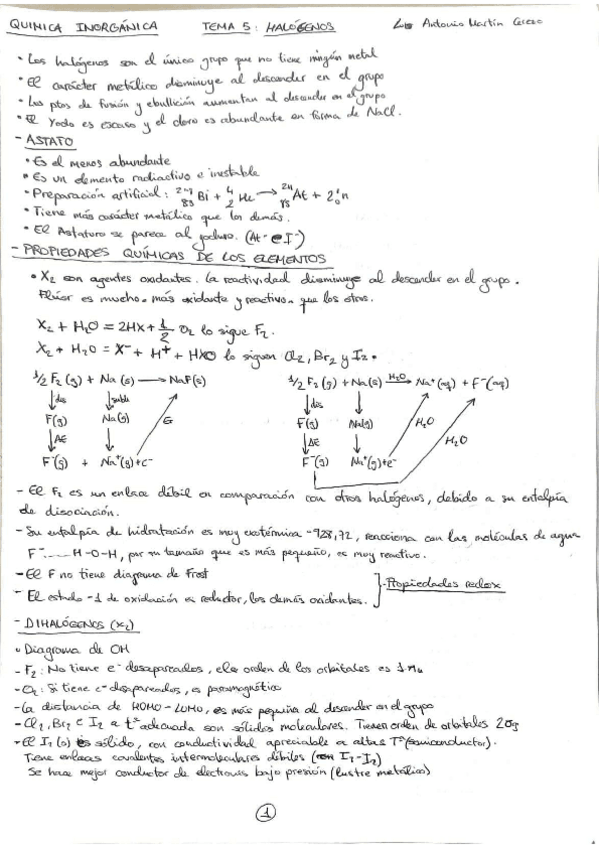 QUIMICA INORGÁNICA TEMA 5: HALÓGENOS Luis Antonio Martín Cerezo
• Los halógenos son el único grupo que no tiene ningún metal
• El carácter metálico disminuye al descender en el grupo
• Los ptos de fusión y ebullición aumentan al descender en el grupo
• El Yodo es escaso y el cloro es abundante en forma de NaCl.
- ASTATO
• Es el menos abundante
• Es un elemento radiactivo e inestable
• Preparación artificial: Bi + He → At + 2 n
• Tiene más carácter metálico que los demás.
• El Astaturo se parece al yoduro. (At⁻ e I⁻)
- PROPIEDADES QUÍMICAS DE LOS ELEMENTOS
• X₂ son agentes oxidantes. La reactividad disminuye al descender en el grupo.
Flúor es mucho más oxidante y reactivo que los otros.
X₂ + H₂O = 2HX + 1/2 O₂ lo sigue F₂.
X₂ + H₂O = X⁻ + H⁺ + HXO lo siguen Cl₂, Br₂ y I₂.
1/2 F₂(g) + Na(s) → NaF(s) 1/2 F₂(g) + Na(s) H₂O→ Na⁺(aq) + F⁻(aq)
↓dis ↓subl ↓dis ↓
F(g) Na(g) F(g) Na(g) H₂O
↓AE ↓ ↓AE ↓ H₂O
F⁻(g) + Na⁺(g)+e⁻ F⁻(g) Na⁺(g)+e⁻
- El F₂ es un enlace débil en comparación con otros halógenos, debido a su entalpía
de disociación.
- Su entalpía de hidratación es muy exotérmica -928,72, reacciona con las moléculas de agua
F⁻.....H-O-H, por su tamaño que es más pequeño, es muy reactivo.
- El F no tiene diagrama de Frost
- El estado -1 de oxidación es reductor, los demás oxidantes. } - Propiedades redox
- DIHALÓGENOS (X₂)
• Diagrama de OM
- F₂: No tiene e⁻ desapareados, el orden de los orbitales es
- O₂: Si tiene e⁻ desapareados, es paramagnético
- La distancia de HOMO-LUMO, es más pequeña al descender en el grupo
- Cl₂, Br₂ e I₂ a tª adecuada son sólidos moleculares. Tienen orden de orbitales
- El I₂(s) es sólido, con conductividad apreciable a altas Tª (semiconductor).
Tiene enlaces covalentes intermoleculares débiles (I₂-I₂)
Se hace mejor conductor de electrones bajo presión (lustre metálico)
1